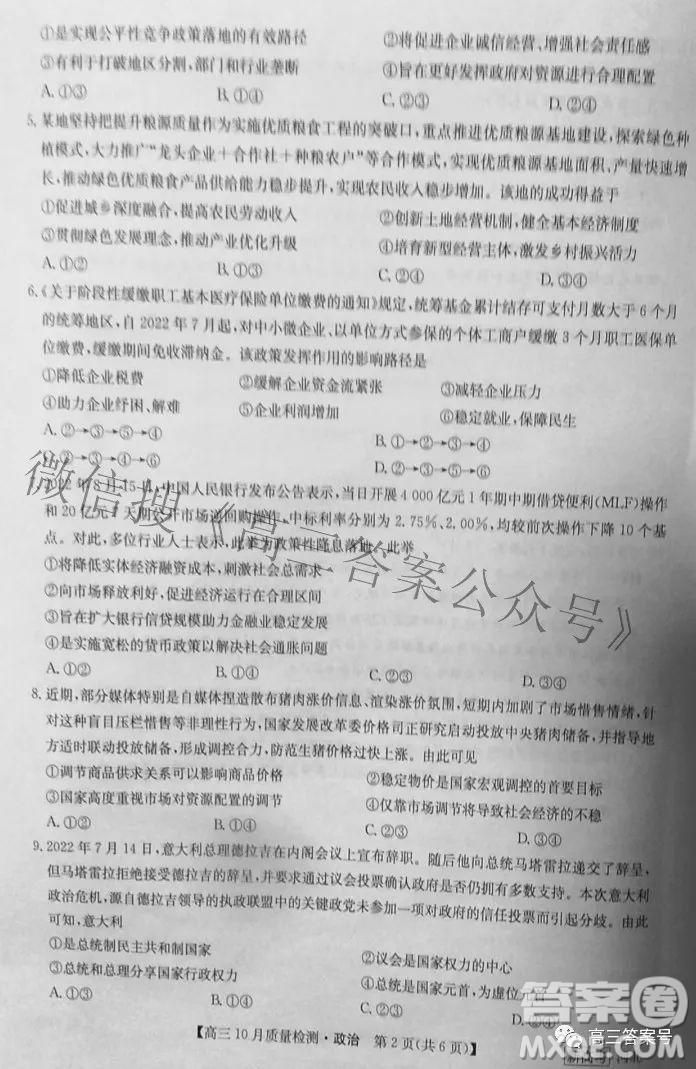 ①是实现公平性竞争政策落地的有效路径 ②将促进企业诚信经营、增强社会责任感
③有利于打破地区分割、部门和行业垄断 ④旨在更好发挥政府对资源进行合理配置
A.①③ B.①④ C.②③ D.②④
5.某地坚持把提升粮源质量作为实施优质粮食工程的突破口,重点推进优质粮源基地建设,探索绿色种
植模式,大力推广“龙头企业+合作社+种粮农户”等合作模式,实现优质粮源基地面积、产量快速增
长,推动优质粮食产品供给能力稳步提升,实现农民收入稳步提高。该地的成功得益于
①促进城乡深度融合,提高农民劳动收入 ②创新土地经营机制,健全基本经济制度
③贯彻绿色发展理念,推动产业优化升级 ④培育新型经营主体,激发乡村振兴活力
A.①② B.①③ C.②④ D.③④
6.《关于阶段性缓缴职工基本医疗保险单位缴费的通知》规定,统筹基金累计结存可支付月数大于6个月
的统筹地区,自2022年7月起,对中小微企业、以单位方式参保的个体工商户缓缴3个月职工医保单
位缴费,缓缴期间免收滞纳金。该政策发挥作用的影响路径是
①降低企业税费 ②缓解企业资金流紧张 ③减轻企业压力
④助力企业纾困、解难 ⑤企业利润增加 ⑥稳定就业,保障民生
A.②→③→⑤→④ B.①→③→④→⑥
C.②→③→④→⑥ D.②→①→⑤→④
2022年8月15日,中国人民银行发布公告表示,当日开展4 000亿元1年期中期借贷便利(MLF)操作
和20亿元7天期公开市场逆回购操作,中标利率分别为2.75%、2.00%,均较前次操作下降10个基
点。对此,多位行业人士表示,此举为政策性降息落地。此举
①将降低实体经济融资成本,刺激社会总需求
②向市场释放利好,促进经济运行在合理区间
③旨在扩大银行信贷规模助力金融业稳定发展
④是实施宽松的货币政策以解决社会通胀问题
A.①② B.①④ C.②③ D.③④
8.近期,部分媒体特别是自媒体捏造散布猪肉涨价信息、渲染涨价氛围,短期内加剧了市场惜售情绪,针
对这种盲目压栏惜售等非理性行为,国家发展改革委价格司正研究启动投放中央猪肉储备,并指导地
方适时联动投放储备,形成调控合力,防范生猪价格过快上涨。由此可见
①调节商品供求关系可以影响商品价格 ②稳定物价是国家宏观调控的首要目标
③国家高度重视市场对资源配置的调节 ④仅靠市场调节将导致社会经济的不稳
A.①③ B.①④ C.②③ D.②④
9.2022年7月14日,意大利总理德拉吉在内阁会议上宣布辞职。随后他向总统马塔雷拉递交了辞呈,
但马塔雷拉拒绝接受德拉吉的辞呈,并要求通过议会投票确认政府是否仍享有多数支持。本次意大利
政治危机,源自德拉吉领导的执政联盟中的关键政党未参加一项对政府的信任投票而引起分歧。由此
可知,意大利
①是总统制民主共和制国家 ②议会是国家权力的中心
③总统和总理分享国家行政权力 ④总统是虚位元首
A.①② B.①③ C.②④ D.③④
【高三10月质量检测·政治 第2页(共6页)】
微信搜《高三答案公众号》
答案卷
高三答案号